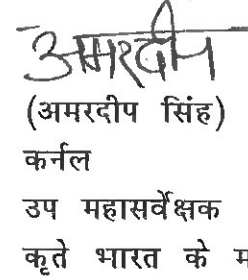 अमरदीप
(अमरदीप सिंह)
कर्नल
उप महासर्वेक्षक
कृते भारत के म